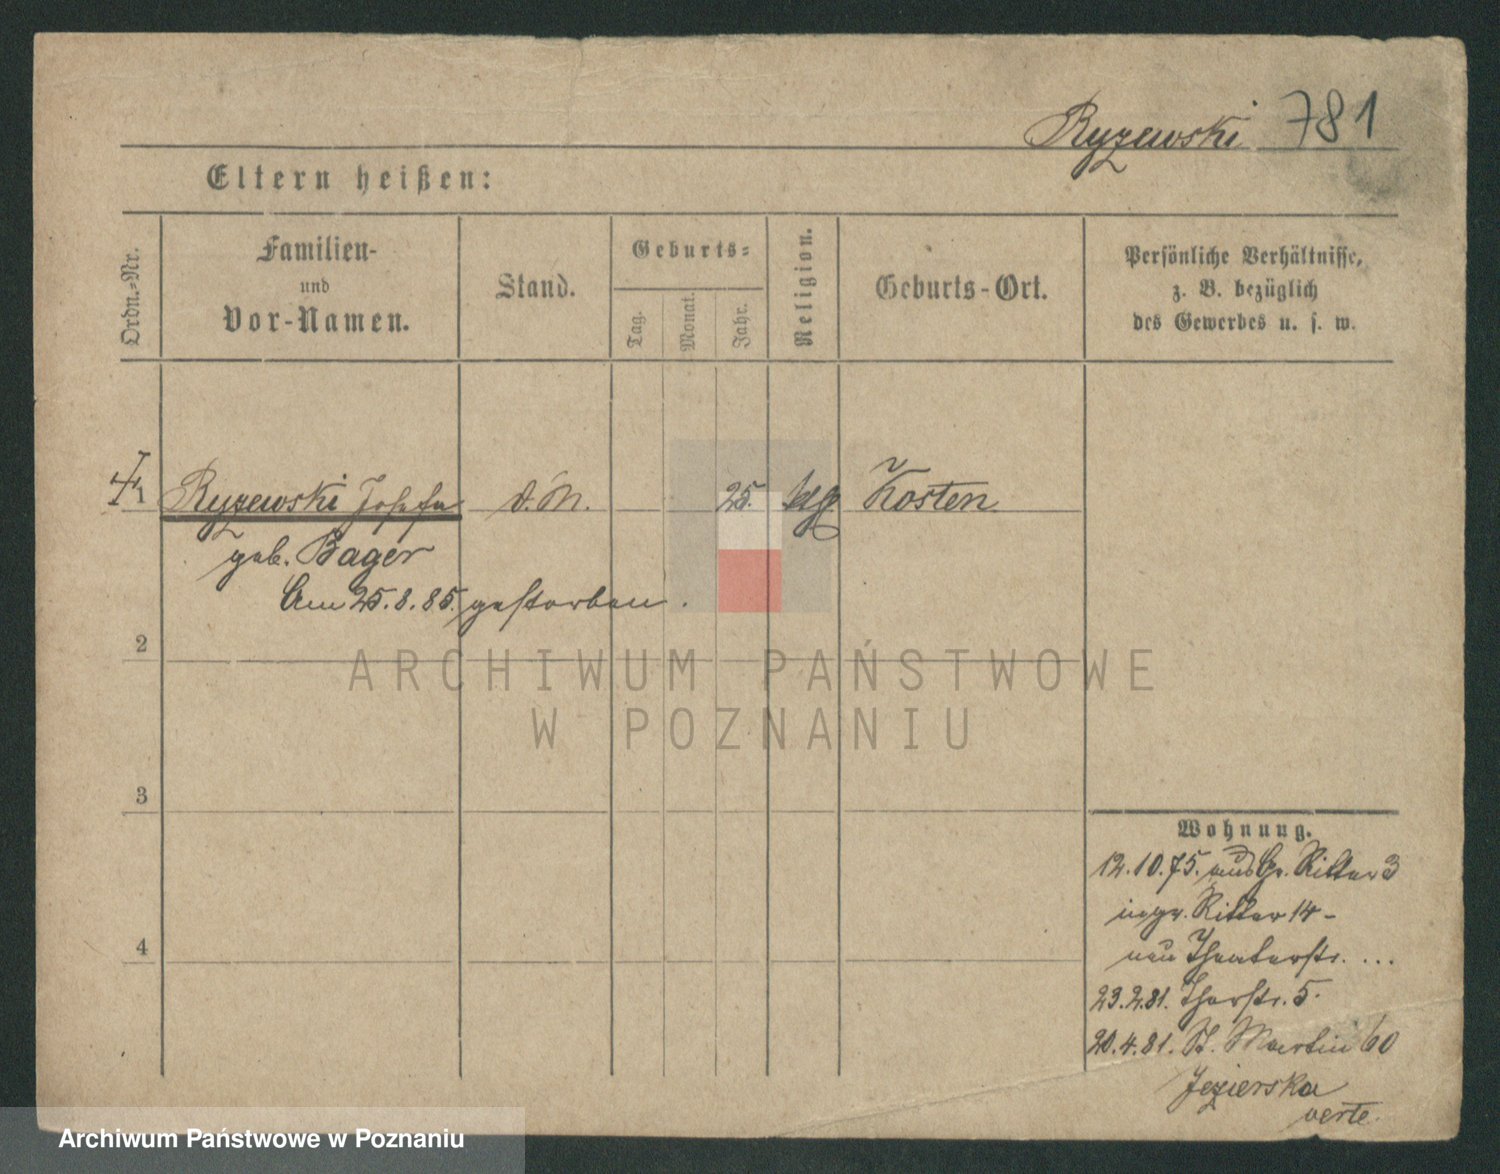 Ryzewski 781
Eltern heißen:
Ordn.-Nr.
Familien-
und
Vor-Namen.
Stand.
Geburts-
Tag.
Monat.
Jahr.
Religion.
Geburts-Ort.
Persönliche Verhältnisse,
z. B. bezüglich
des Gewerbes u. s. w.
1 Ryzewski Josefa D.M. 25. Kosten
geb. Bager
Am 25.8.85. gestorben.
2
ARCHIWUM PAŃSTWOWE
W POZNANIU
3
4
Wohnung.
12.10.75. aus Gr. Ritter 3
Ritter 14 -
neu Theaterstr. ...
23.2.81. Thorstr. 5.
20.4.81. St. Martin 60
Jezierska
verte.
Archiwum Państwowe w Poznaniu